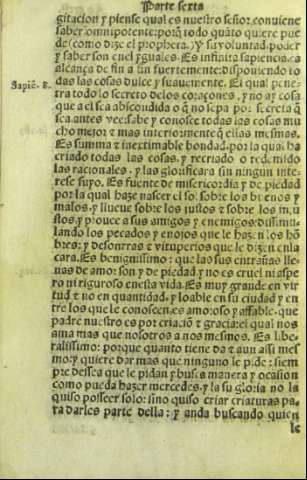 Parte sexta
gitacion y piense qual es nuestro señor. conuiene
saber omnipotente: porq̃ todo quãto quiere pue
de (como dize el propheta.) Y su voluntad, poder
y saber son cuel yguales. Es infinita sapiencia, ca
alcança de fin a fin fuertemente: disponiendo to
Sapiẽ. 8.
das las cosas dulce y suauemente. El qual pene
tra todo lo secreto delos coraçones, y no ay cosa
que a el sea abscondida o q̃ no sepa por secreta q̃
sea. antes vee: sabe y conosce todas las cosas mu
cho mejor e mas interiormente q̃ ellas mesmas.
Es summa e inextimable bondad, por la qual ha
criado todas las cosas, y recriado o redemido
las racionales, y las glorificara sin ningun inte-
resse suyo. Es fuente de misericordia y de piedad
por la qual haze nascer el sol sobre los buenos y
malos, y llueue sobre los justos e sobre los inju
stos, y prouee a sus amigos y enemigos: dissimu
lando los pecados y enojos que le hazen los hõ
bres: y desonrras e vituperios que le dizen en la
cara. Es benignissimo: que las sus entrañas lle-
nas de amor: son y de piedad y no es cruel ni aspe
ro ni riguroso enesta vida. Es muy grande en vir
tud e no en quantidad, y loable en su ciudad y en
tre los que le conoscen, es amoroso y affable. que
padre nuestro es por criaciõ e gracia: el qual nos
ama mas que nosotros a nos mesmos. Es libe-
ralissimo: porque quanto tiene da e aun assi mes
mo: y quiere dar mas que ninguno le pide: siem
pre dessea que le pidan y busca manera y ocasion
como pueda hazer mercedes, y la su gloria no la
quiso posseer solo: sino quiso criar criaturas pa
ra darles parte della: y anda buscando quien
le